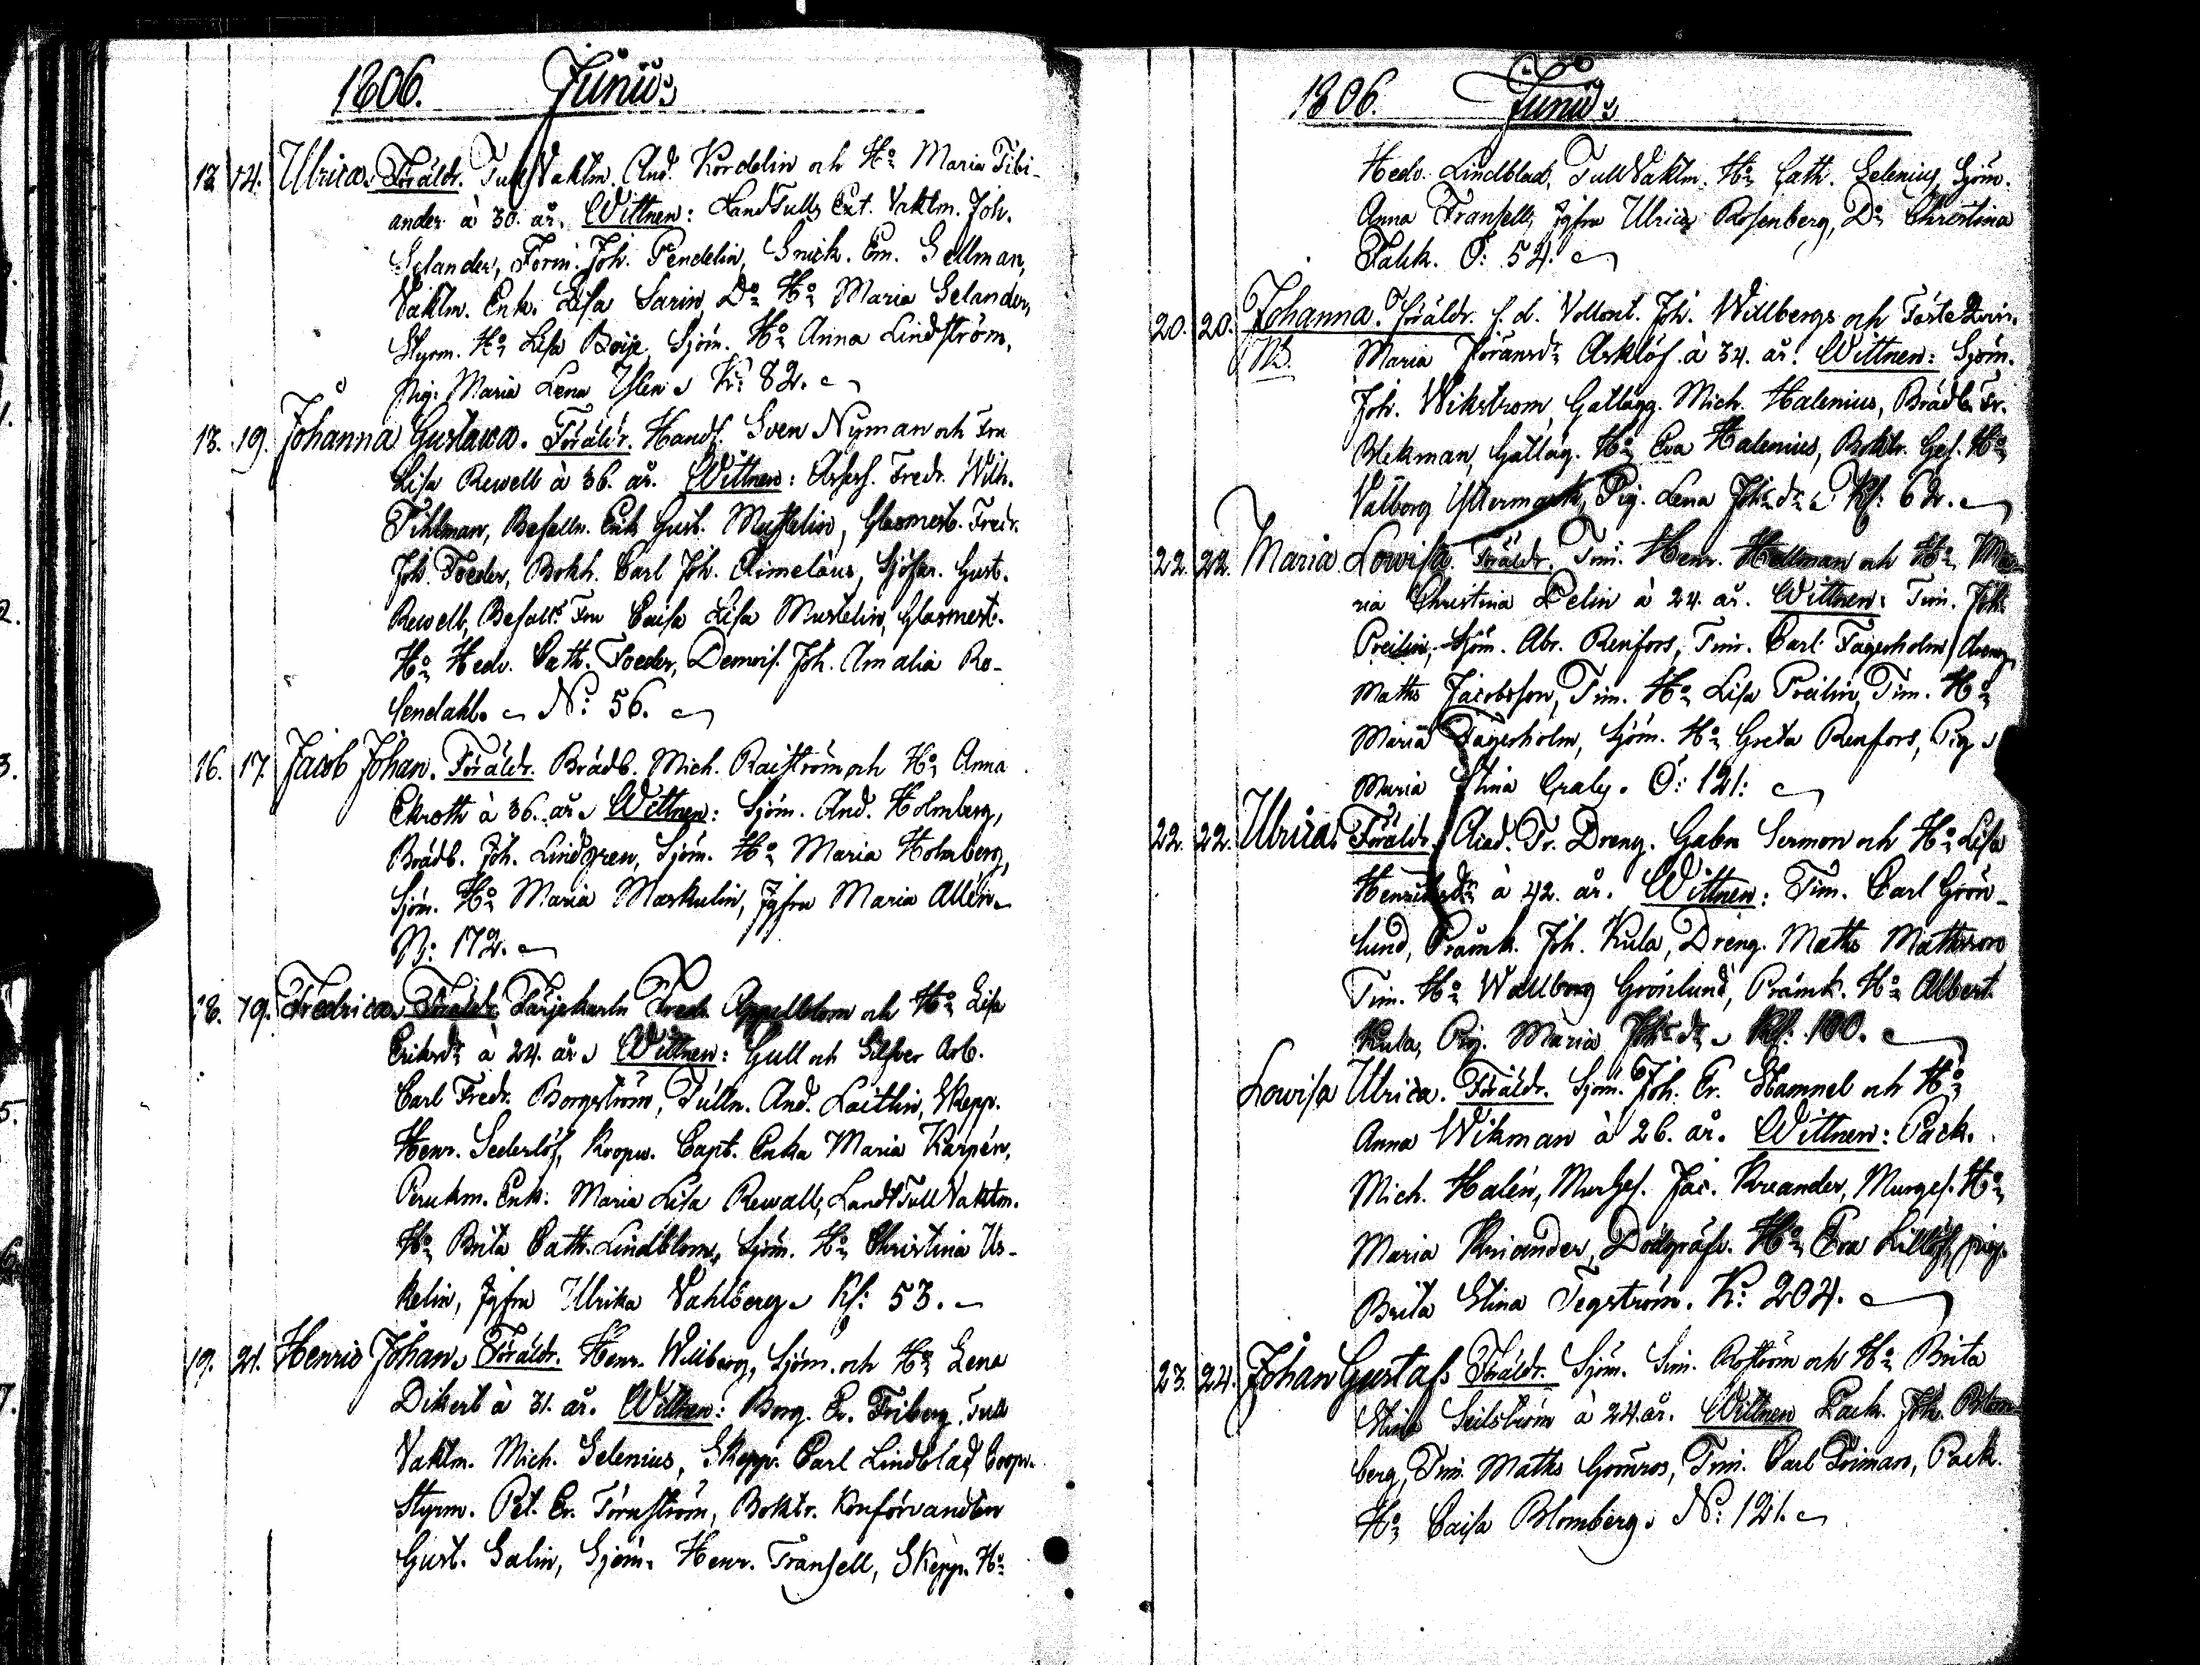 1806. Junius
13. 14. Ulrica. Föräldr. Tull Vaktm. And. Kordelin och H:o Maria Tibi-
ander à 30. år. Wittnen: LandTulls Ext. Vaktm. Joh.
Gelander, Joh. Pendelin, Snick. Em. Sellman,
Vaktm. Enk. Lisa Sarin, D:o H:o Maria Gelander,
Styrm. H:o Lisa Boije, Sjöm. H:o Anna Lindström,
Pig. Maria Lena K: 82.
13. 19. Johanna Gustava. Föräldr. Handl. Sven Nyman och Fru
Lisa Rewell à 36. år. Wittnen: Assess. Fredr. Wilh.
Tihlman, Befalln. Gust. Mustelin, Glasmest. Fredr.
Joh. Foeder, Bokh. Carl Joh. Aimelæus, Sjöfar. Gust.
Rewell, Befalls. Fru Caisa Lisa Mustelin, Glasmest.
H:o Hedv. Cath. Foeder, Demois. Joh. Amalia Ro-
sendahl. N: 56.
16. 17. Jacob Johan. Föräldr. Brädb. Mich. Raiström och H:o Anna
Ekroth à 36. år. Wittnen: Sjöm. And. Holmberg,
Brädb. Joh. Lindgren, Sjöm. H:o Maria Holmberg,
Sjöm. H:o Maria Markulin, Jgfru Maria Allén.
N: 172.
18. 19. Fredrica. Föräldr. Färjekarln Fredr. Appelblom och H:o Lisa
Eriksdr à 24. år. Wittnen: Gull och Silfver Arb.
Carl Fredr. Borgström, Tulln. And. Laitlin, Skepp.
Henr. Sederlöf, Koopv. Capt. Enka Maria Karpén,
Perukm. Enk: Maria Lisa Rewall, LandtTull Vaktm.
H:o Brita Cath. Lindblom, Sjöm. H:o Christina Us-
kelin, Jgfru Ulrika Vahlberg. Kl: 53.
19. 21. Henric Johan. Föräldr. Henr. Willberg, Sjöm. och H:o Lena
Dikert à 31. år. Wittnen: Borg. Er. Friberg, Tull
Vaktm. Mich. Selenius, Skepp. Carl Lindblad, Coopv.
Styrm. Pet. Er. Törnström, Boktr. Konstförvandten
Gust. Salin, Sjöm. Henr. Fransell, Skepp. H:o
1806. Junius
Hedv. Lindblad, TullVaktm. H:o Cath. Selenius, Sjöm.
Anna Fransell, Jgfru Ulrica Rosenberg, D:o Christina
Falck. Ö: 54.
20. 20. Johanna. Föräldr. f. d. Volont. Joh. Willbergs och Fästeqvin.
NB. Maria Jöransdr Asklöf à 34. år. Wittnen: Sjöm.
Joh. Wikstrom, Gatlägg. Mich. Halenius, Brädb. Er.
Blekman, Gatläg. H:o Eva Halenius, Boktr. Ges. H:o
Valborg Ystermark, Pig. Lena Joh:dr. Kl: 62.
22. 22. Maria Lowisa. Föräldr. Tim. Henr. Hellman och H:o Ma-
ria Christina Delin à 24. år. Wittnen: Tim. Joh.
Preilin, Sjöm. Abr. Renfors, Tim. Carl Fagerholm, dreng.
Maths Jacobsson, Tim. H:o Lisa Preilin, Tim. H:o
Maria Fagerholm, Sjöm. H:o Greta Renfors, Pig.
Maria Stina Graly. Ö: 121:
22. 22. Ulrica. Föräldr. Acad. Tr. Dreng. Gabr. Sermon och H:o Lisa
Henriksdr à 42. år. Wittnen: Tim. Carl Grön-
lund, Pråmk. Joh. Kula, Dräng. Maths Mathsson
Tim. H:o Wallborg Grönlund, Pråmk. H:o Albert.
Kula, Pig. Maria Joh:dr. Kl: 100.
Lowisa Ulrica. Föräldr. Sjöm. Joh. Er. Stamnel och H:o
Anna Wikman à 26. år. Wittnen: Pack.
Mich. Halén, MurGes. Jac. Kreander, Murges. H:o
Maria Kriander, Dödgräfv. H:o Eva Lillöf, pig.
Brita Stina Tegström. K: 204.
23. 24. Johan Gustaf. Föräldr. Sjöm. Sim. Roström och H:o Brita
Stina Seilström à 24. år. Wittnen Pack. Joh. Blom-
berg, Tim. Maths Grönros, Tim. Carl Friman, Pack.
H:o Caisa Blomberg. N: 121.